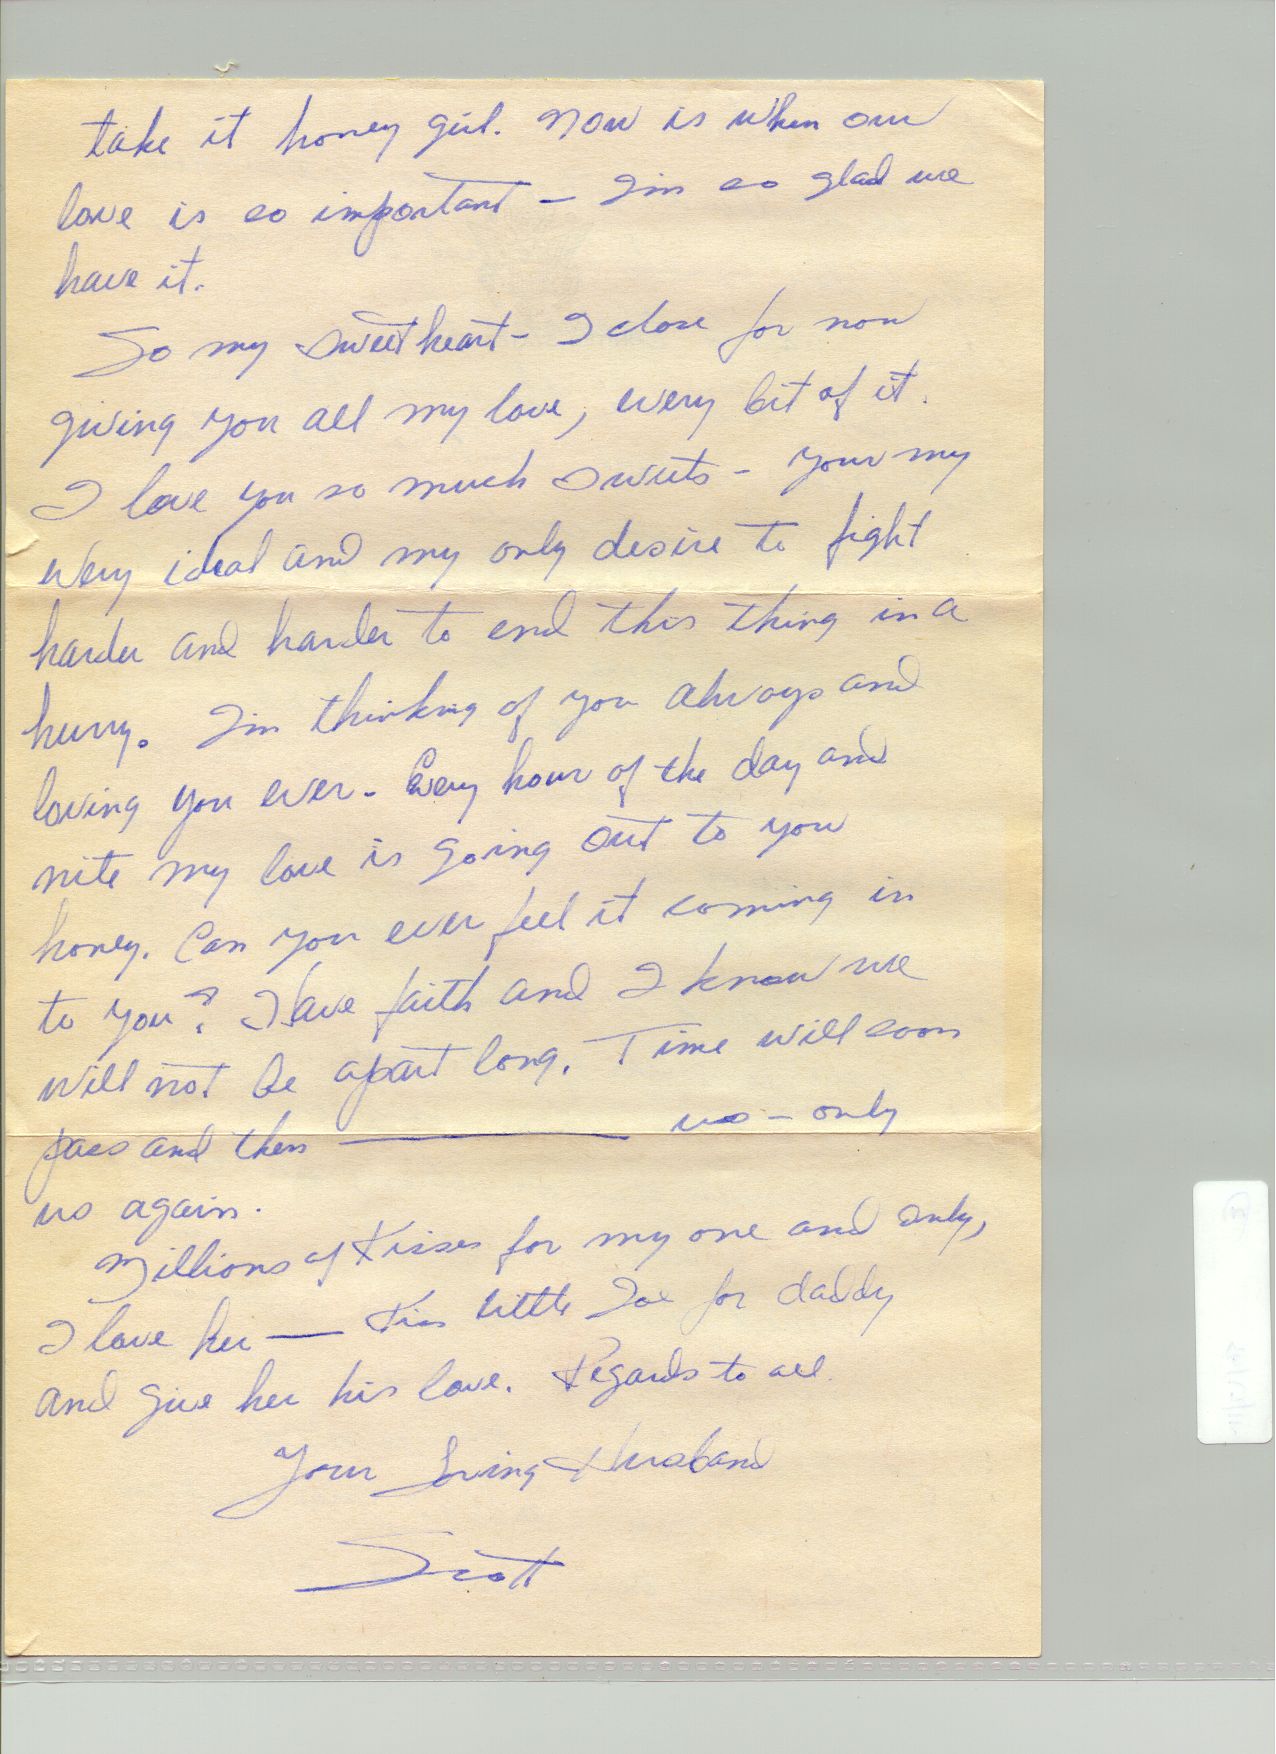 take it honey girl. Now is when our
love is so important – I'm so glad we
have it.
So my sweetheart – I close for now
giving you all my love, every bit of it.
I love you so much sweets – your my
very ideal and my only desire to fight
harder and harder to end this thing in a
hurry. I'm thinking of you always and
loving you ever. Every hour of the day and
nite my love is going out to you
honey. Can you ever feel it coming in
to you? Have faith and I know we
will not be apart long. Time will soon
pass and then —— us – only
us again.
Millions of Kisses for my one and only,
I love her — Kiss little Joe for daddy
and give her his love. Regards to all.
Your Loving Husband
Scott